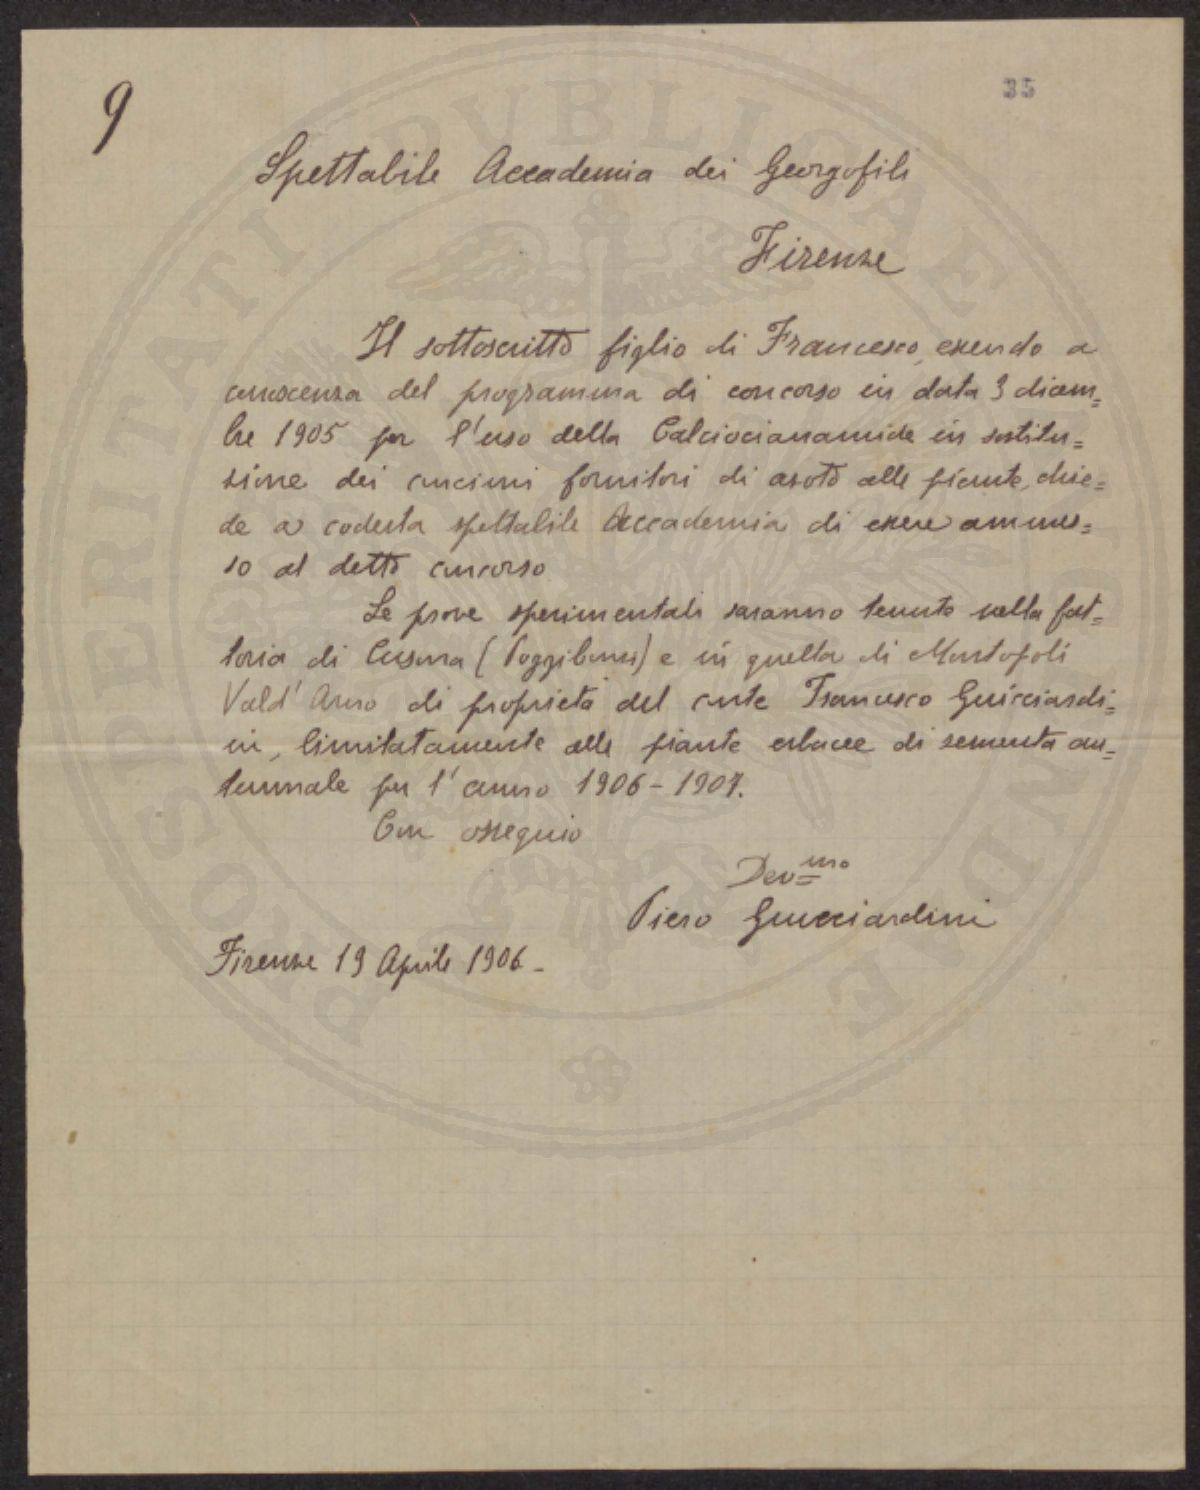 9
35
Spettabile Accademia dei Georgofili
Firenze
Il sottoscritto figlio di Francesco, essendo a
conoscenza del programma di concorso in data 3 dicem=
bre 1905 per l'uso della Calciocianamide in sostitu=
zione dei concimi fornitori di azoto alle piante, chie=
de a codesta spettabile Accademia di essere ammes=
so al detto concorso
Le prove sperimentali saranno tenute nella fat=
toria di Cusona (Poggibonsi) e in quella di Montopoli
Vald'Arno di proprietà del conte Francesco Guicciardi=
ni, limitatamente alle piante erbacee di sementa au=
tunnale per l'anno 1906-1907.
Con ossequio
Dev.mo
Piero Guicciardini
Firenze 19 Aprile 1906-
PROSPERITATI PUBLICAE AUGENDAE